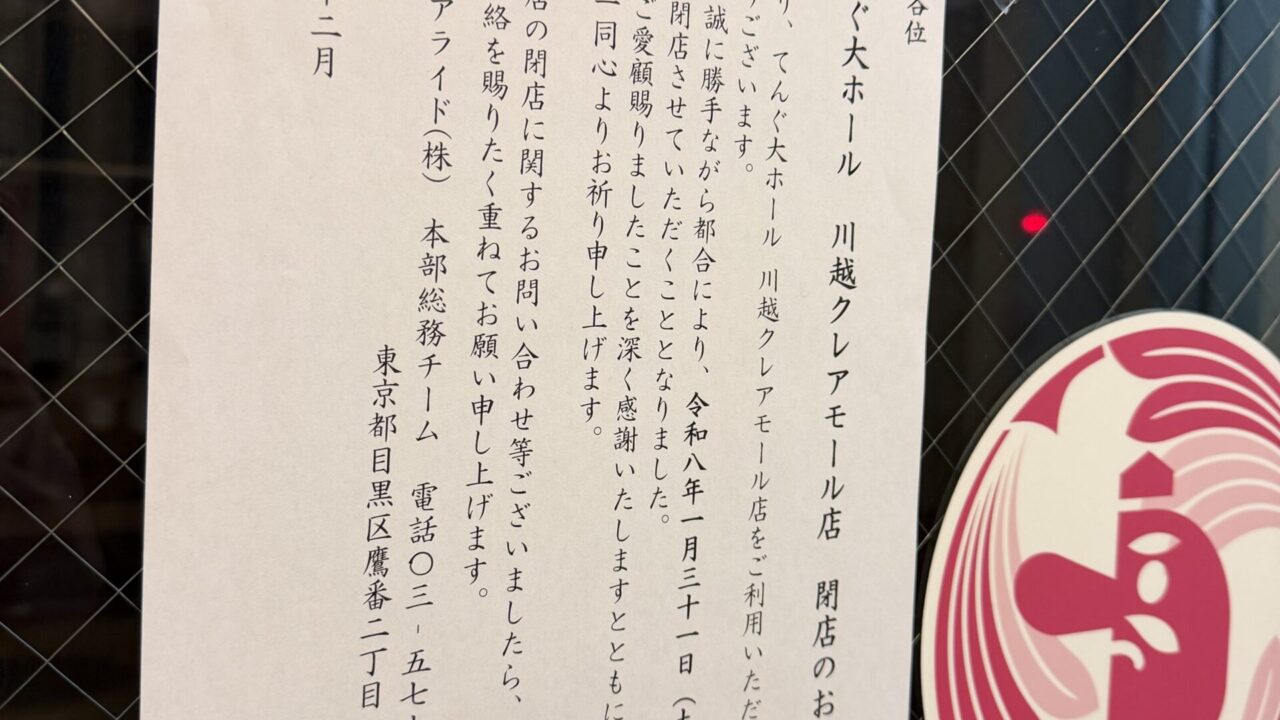 各位
ぐ大ホール　川越クレアモール店　閉店のお
り、てんぐ大ホール 川越クレアモール店をご利用いただ
ございます。
誠に勝手ながら都合により、令和八年一月三十一日（
閉店させていただくこととなりました。
ご愛顧賜りましたことを深く感謝いたしますとともに
同心よりお祈り申し上げます。
店の閉店に関するお問い合わせ等ございましたら、
絡を賜りたく重ねてお願い申し上げます。
アライド(株)　本部総務チーム　電話〇三-五七
東京都目黒区鷹番二丁目
二月